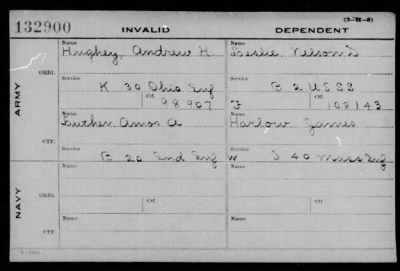 (3-21-8)
132900 INVALID DEPENDENT
Name Name
Hughey, Andrew H Leslie Nelson D
ORIG.
Service Service
K 30 Ohio Inf B 2 U.S.S.S
Ctf. Ctf.
98907 F 108143
ARMY
Name Name
Luther, Amos A Harlow James
CTF.
Service Service
B 20 Ind Inf W I 40 Mass Inf
Name Name
ORIG.
Ctf. Ctf.
NAVY
Name Name
CTF.